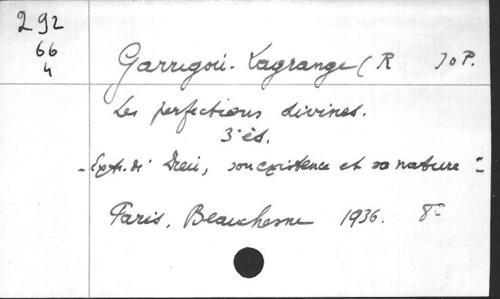 292
66
4
Garrigou-Lagrange (R ) o P.
Les perfections divines.
3ᵉ éd.
- Extr. de "Dieu, son existence et sa nature" -
Paris, Beauchesne 1936. 8°